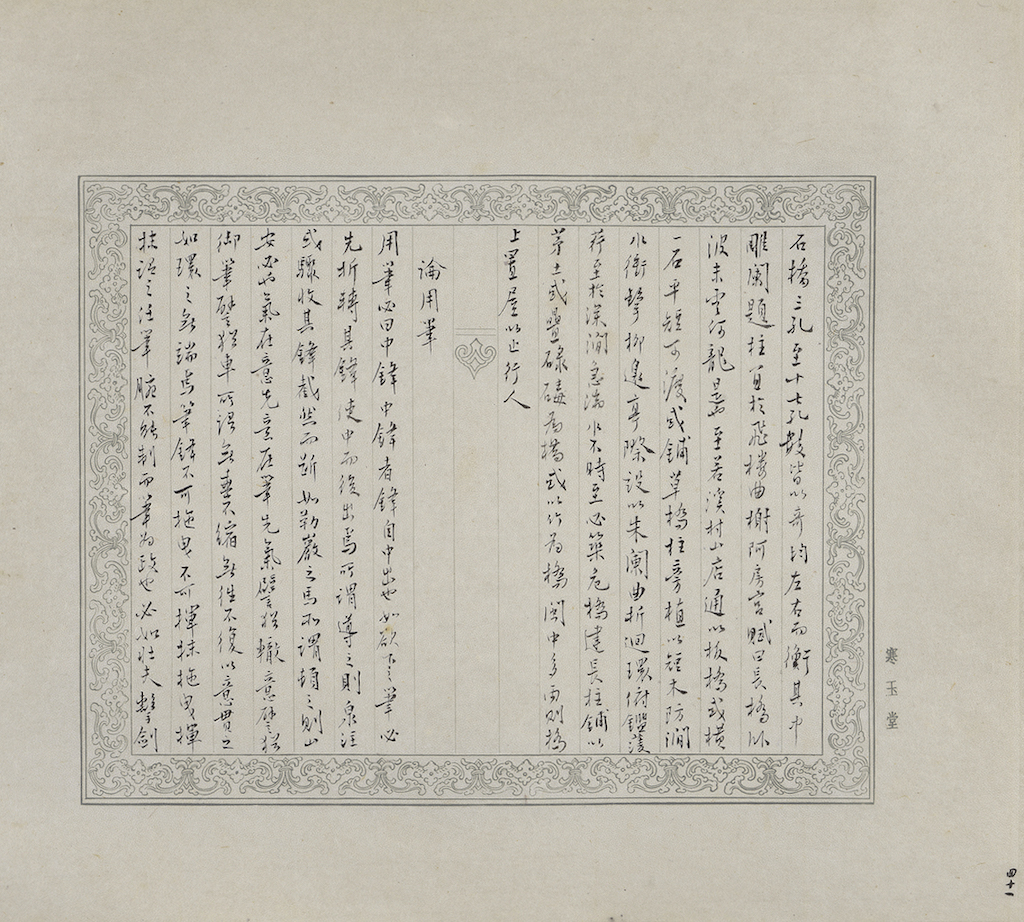 石橋三孔至十七孔數皆以奇均左右而衡其中
雕闌題柱亘於飛樓曲榭阿房宮賦曰長橋臥
波未雲何龍是也至若溪村山店通以板橋或橫
一石平短可渡或鋪草橋柱旁植以短木防澗
水衝擊柳邊亭際設以朱闌曲折迴環俯鑑漣
漪至於深澗急湍水不時至必築危橋建長柱鋪以
茅土或疊磔磚為橋或以竹為橋閩中多雨則橋
上置屋以止行人
論用筆
用筆必曰中鋒中鋒者鋒自中出也如欲下之筆必
先折轉其鋒使中而後出焉所謂導之則泉注
或驟收其鋒截然而斷如勒巖之馬所謂頓之則山
安必也氣在意先意在筆先氣譬猶轍意譬猶
御筆譬猶車所謂無垂不縮無往不復以意貫之
如環之無端焉筆鋒不可拖曳不可揮抹拖曳揮
抹謂之任筆腕不能制而筆為政也必如壯夫擊劍
寒玉堂
四十一